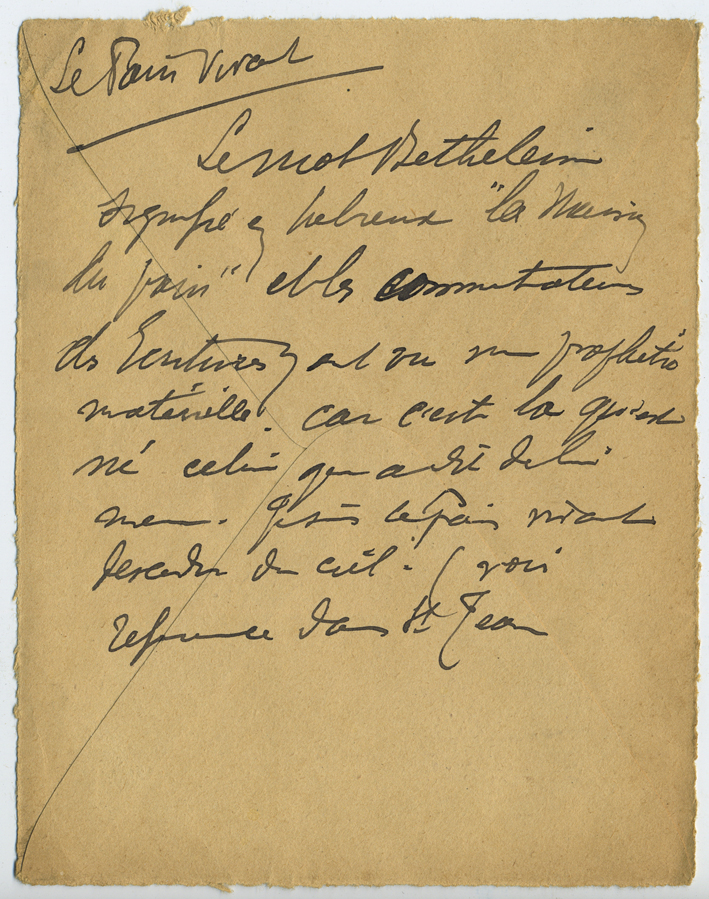 Le Pain Vivant
Le mot Bethleem
signifie en hebreux "la Maison
du pain" et les commentateurs
des Ecritures y ont vu une prophetie
matérielle. car c'est la qu'est
né celui qui a dit de lui
meme. Je suis le pain vivant
descendu du ciel. (voir
reference dans St Jean